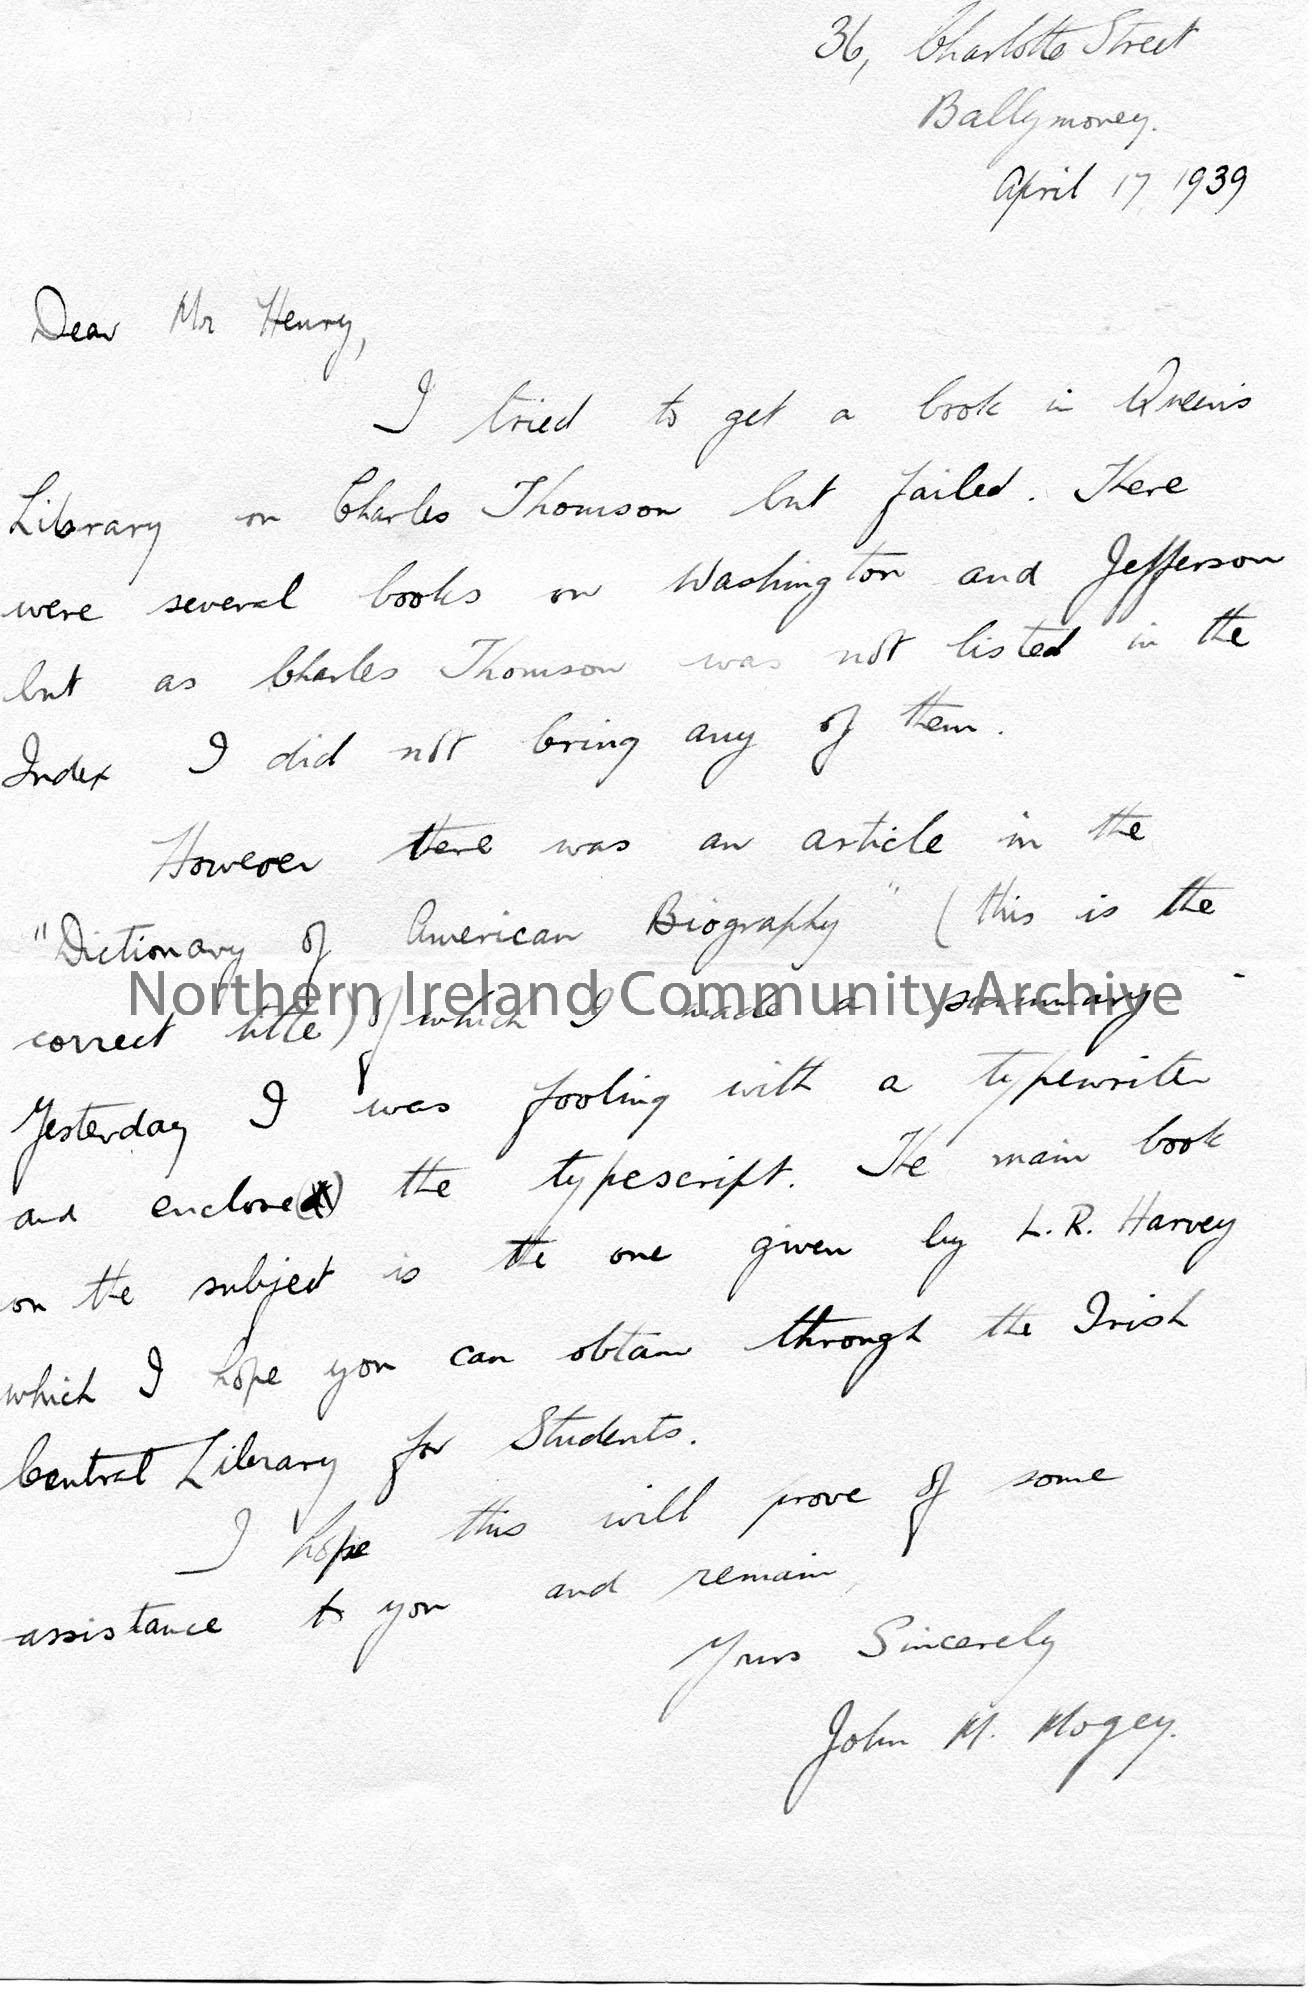 36, Charlotte Street
Ballymoney.
April 17, 1939
Dear Mr Henry,
I tried to get a book in Queens
Library on Charles Thomson but failed. There
were several books on Washington and Jefferson
but as Charles Thomson was not listed in the
Index I did not bring any of them.
However there was an article in the
"Dictionary of American Biography" (this is the
Northern Ireland Community Archive
correct title) of which I made a summary
Yesterday I was fooling with a typewriter
and enclose the typescript. The main book
on the subject is the one given by L.R. Harvey
which I hope you can obtain through the Irish
Central Library for Students.
I hope this will prove of some
assistance to you and remain,
Yours Sincerely
John M. Mogey.